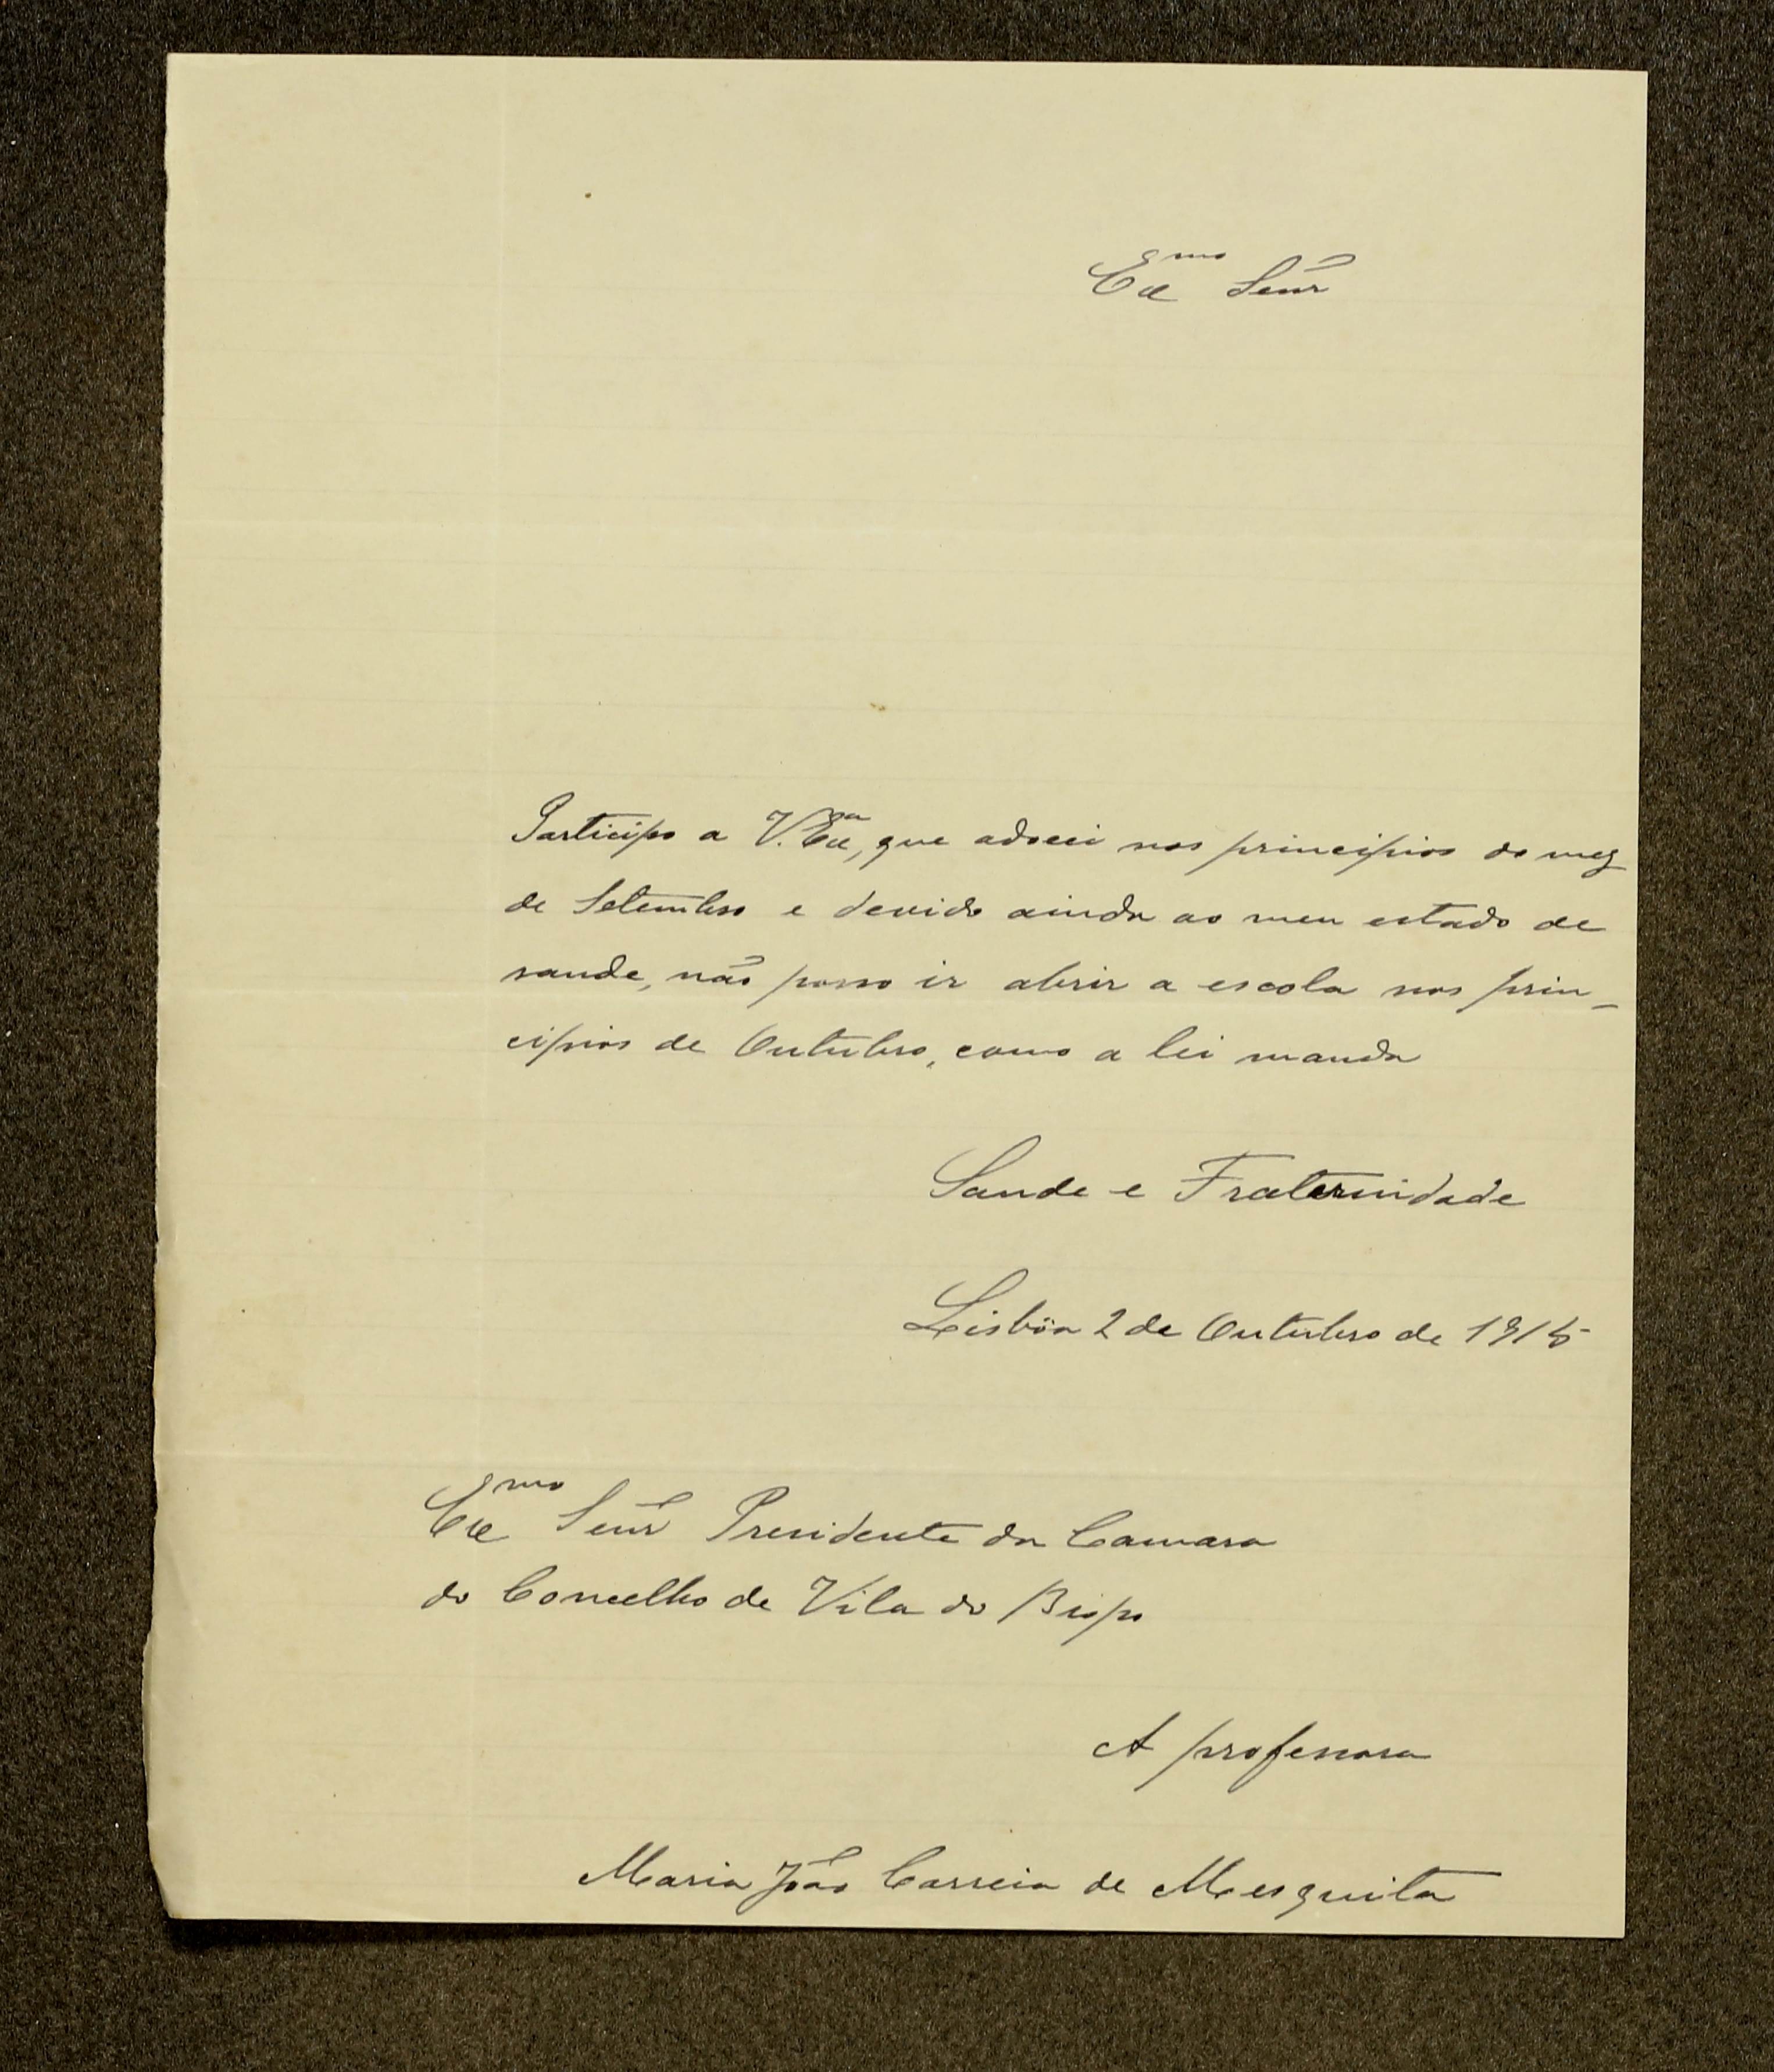 Exc.mo Senr
Participo a V. Exc.a, que adoeci nos principios do mez
de Setembro e devido ainda ao meu estado de
saude, não posso ir abrir a escola nos prin-
cipios de Outubro, como a lei manda
Saude e Fraternidade
Lisbôa 2 de Outubro de 1915
Exc.mo Senr Presidente da Camara
do Concelho de Vila do Bispo
A professora
Maria João Correia de Mesquita